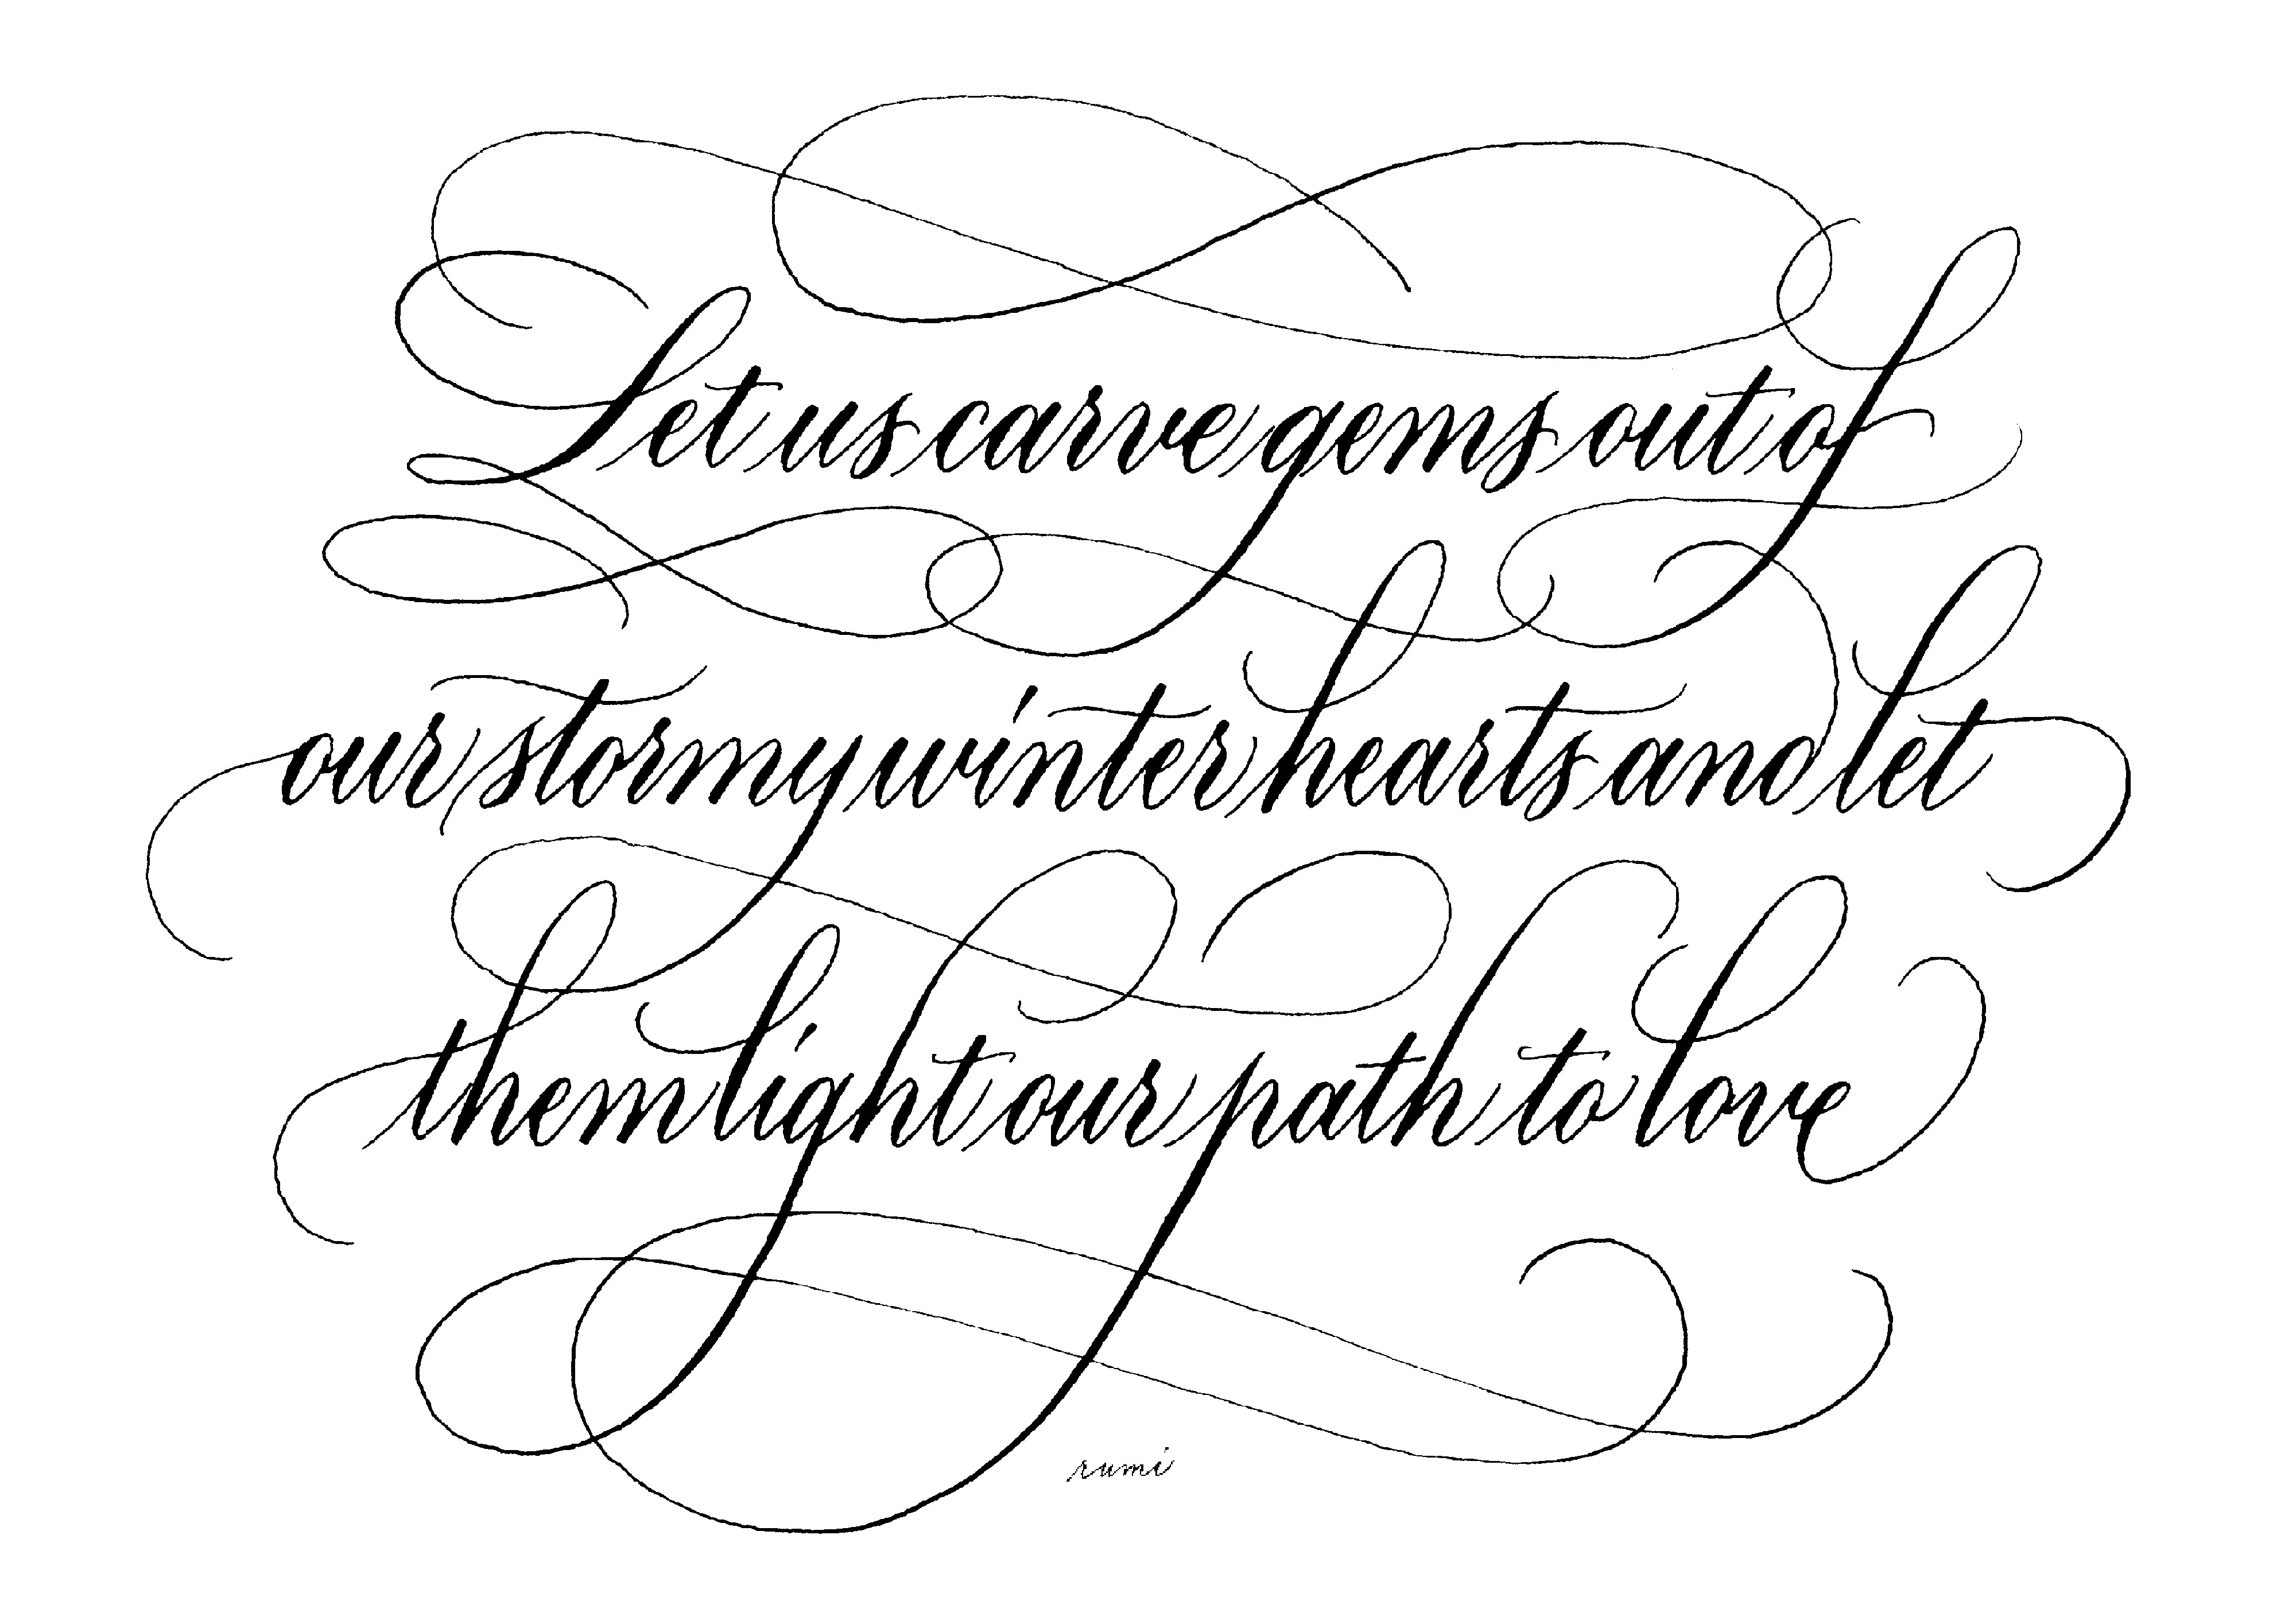 Let us carve gems out of
our stormy winter hearts and let
them light our path to love
rumi